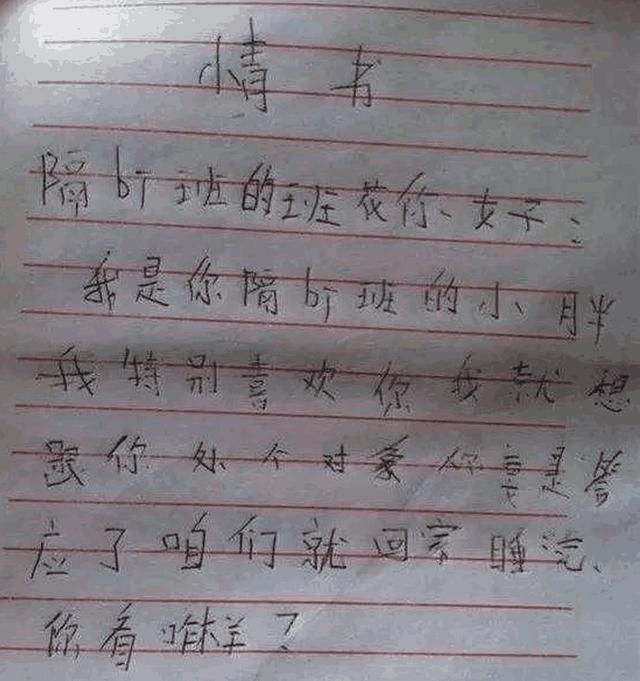 情书
隔bT班的班花你、女子:
我是你隔bT班的小胖
我特别喜欢你我就想
跟你处个对象你要是答
应了咱们就回家睡觉、
你看咋样?